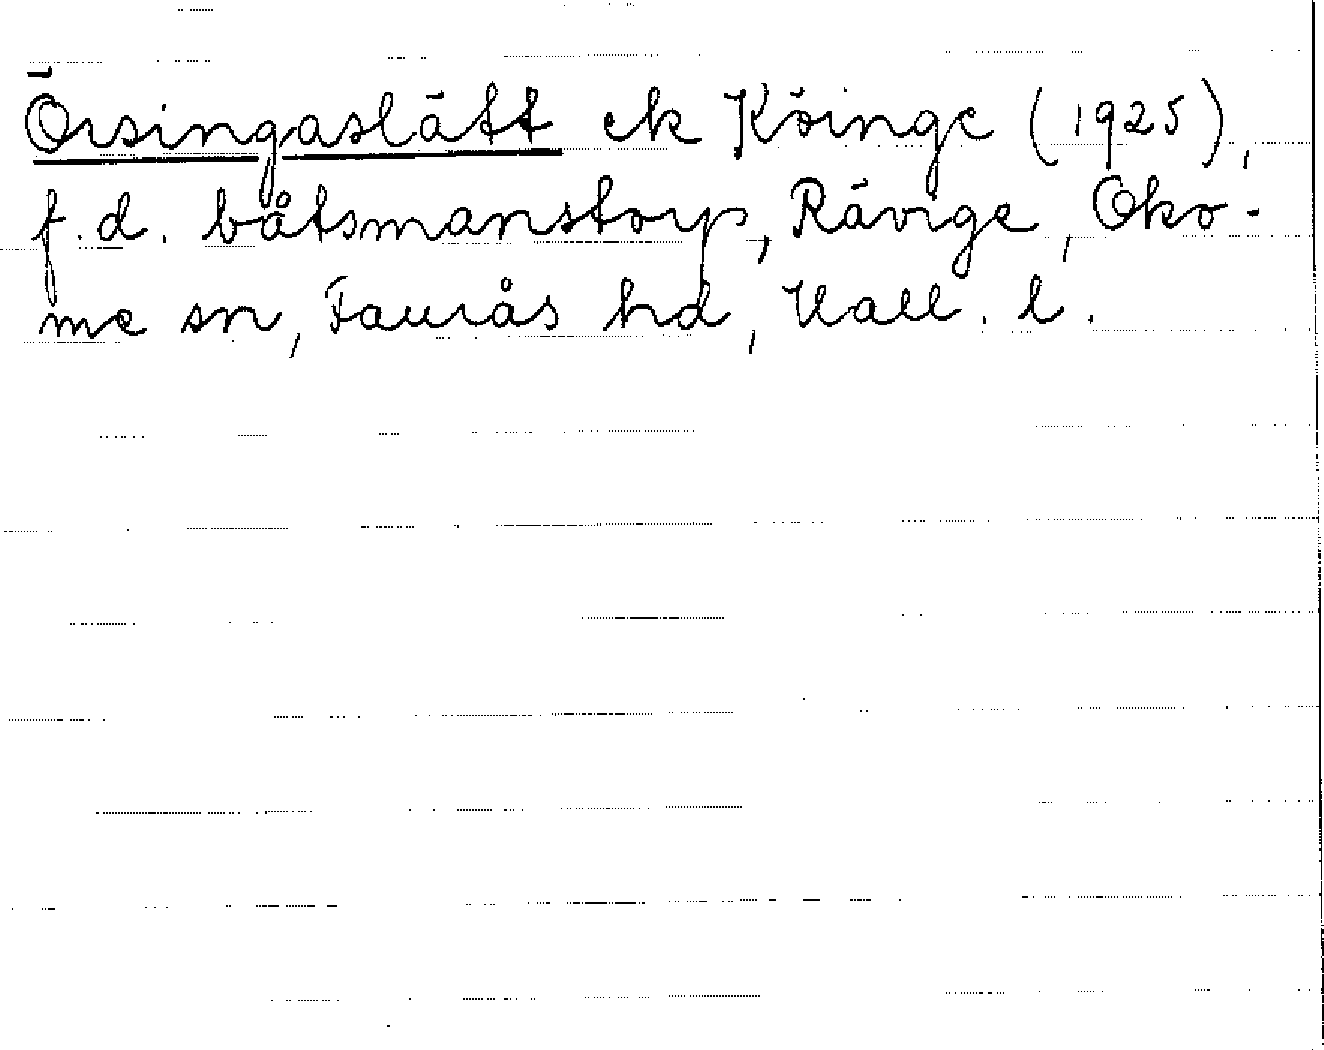 Örsingaslätt ek Köinge (1925),
f.d. båtsmanstorp, Rävige, Oko-
me sn, Faurås hd, Hall. l.